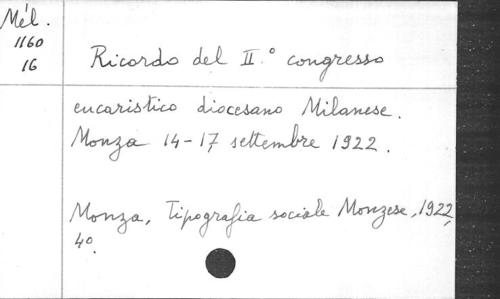 Mél.
1160
16
Ricordo del II.° congresso
eucaristico diocesano Milanese.
Monza 14-17 settembre 1922.
Monza, Tipografia sociale Monzese, 1922,
4°.